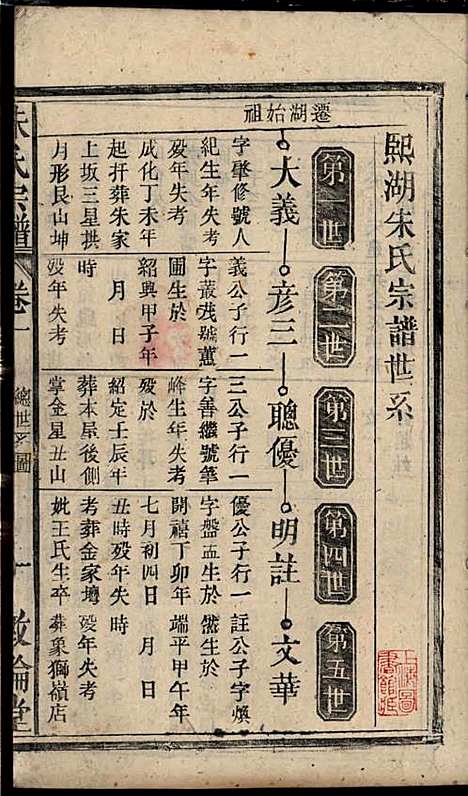 熙湖朱氏宗譜世系
第一世
第二世
第三世
第四世
第五世
遷湖始祖
大義
彥三
聰優
明註
文華
字肇修號人
紀生年失考
歿年失考
成化丁未年
起扞葬朱家
上坂三星拱
月形艮山坤
義公子行一
字叢茂號蕙
圃生於
紹興甲子年
月 日
時
歿年失考
三公子行一
字善繼號筆
峰生年失考
歿於
紹定壬辰年
葬本屋後側
掌金星丑山
優公子行一
字盤 生於
開禧丁卯年
七月初四日
丑時歿年失
考葬金家壋
妣王氏生卒
註公子字煥
然生於
端平甲午年
月 日
時
歿年失考
葬象獅嶺店
朱氏宗譜
卷一
總世系圖
一
敦倫堂
上海圖
書館藏